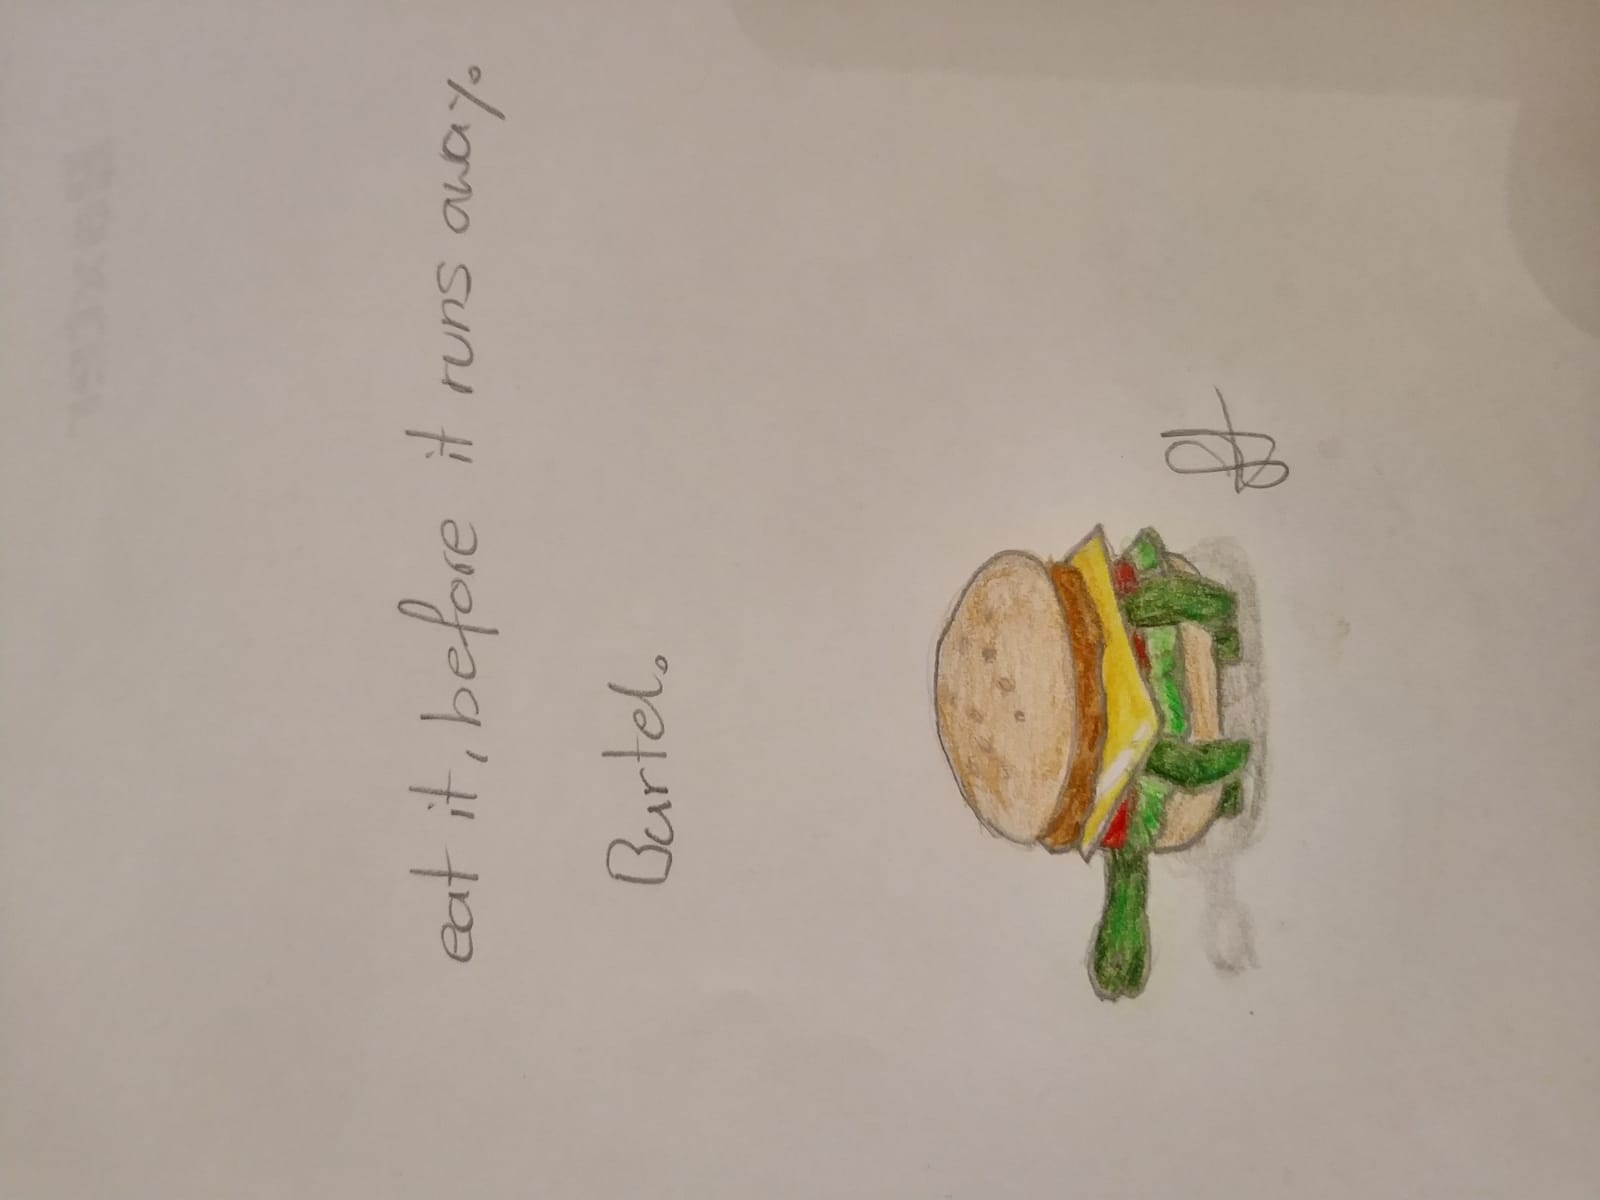 eat it, before it runs away.
Burtel.